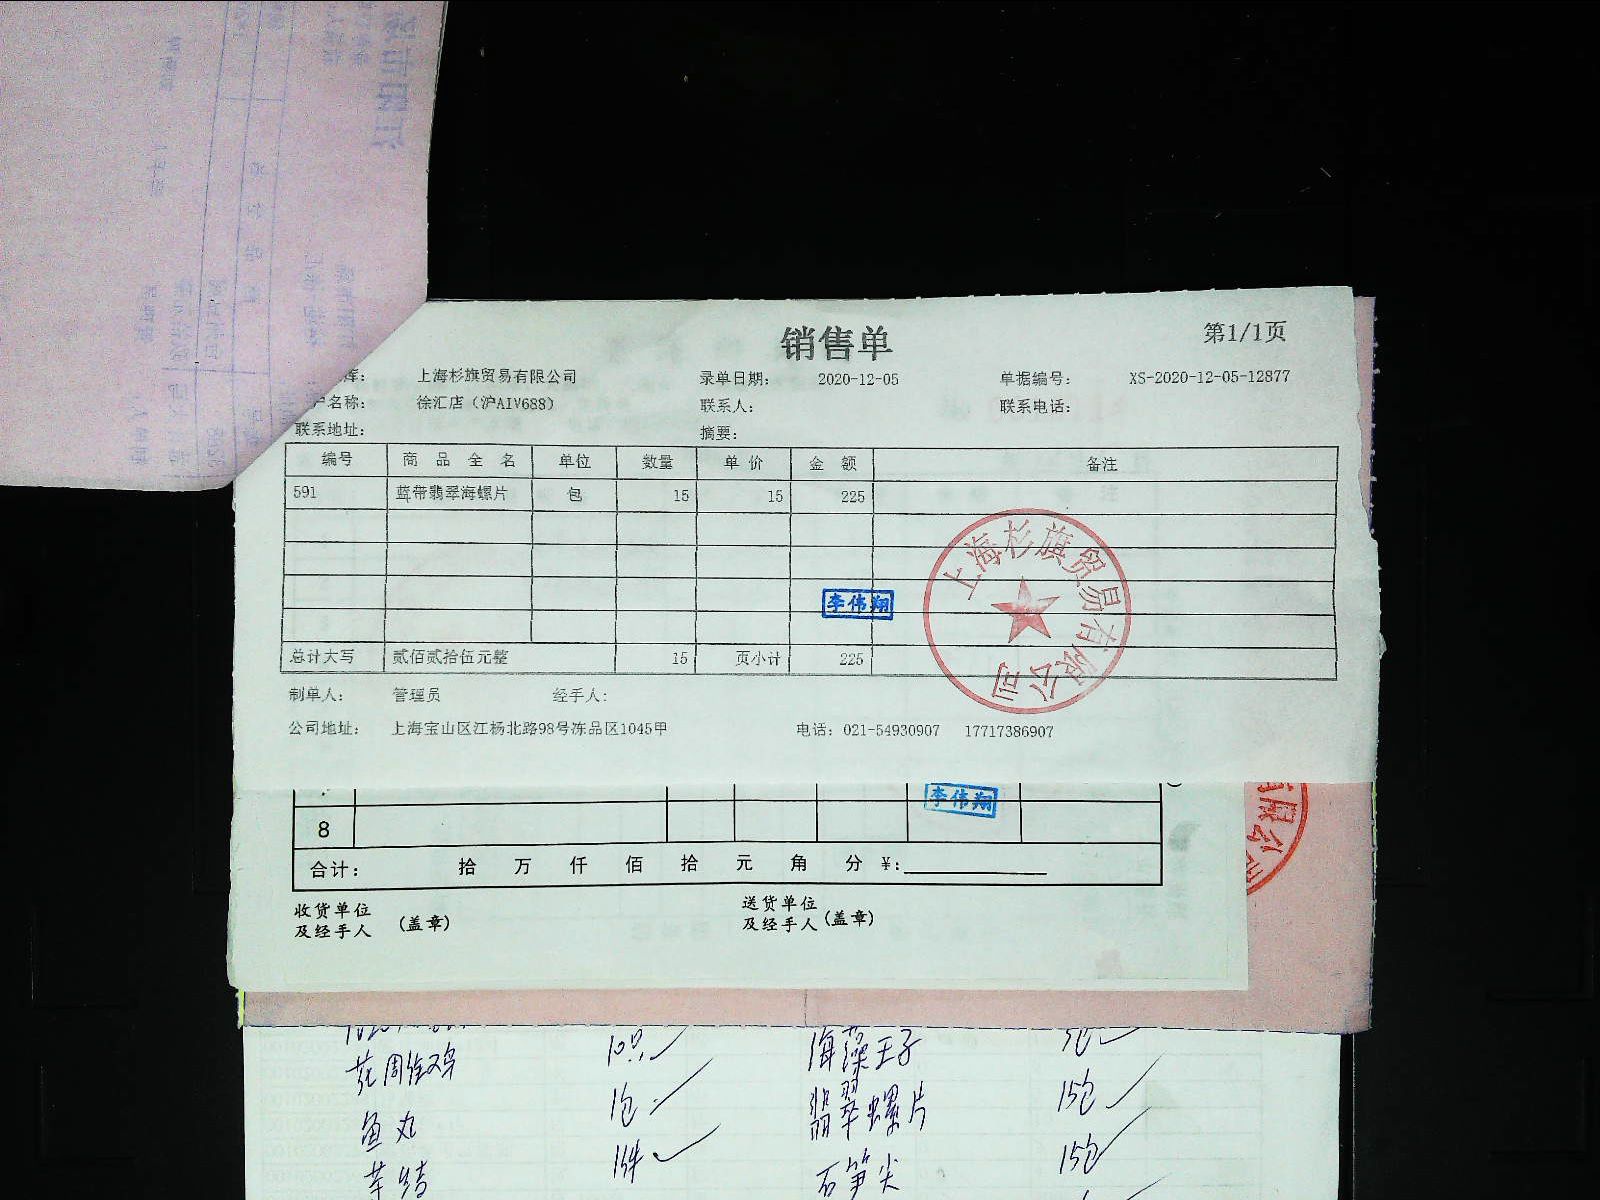 销售单
第1/1页
库： 上海杉旗贸易有限公司 录单日期： 2020-12-05 单据编号： XS-2020-12-05-12877
户名称： 徐汇店（沪AIV688） 联系人： 联系电话：
联系地址： 摘要：
编号 商品全名 单位 数量 单价 金额 备注
591 蓝带翡翠海螺片 包 15 15 225
李伟翔
上海杉旗贸易有限公司
总计大写 贰佰贰拾伍元整 15 页小计 225
制单人： 管理员 经手人：
公司地址： 上海宝山区江杨北路98号冻品区1045甲 电话：021-54930907 17717386907
李伟翔
有限公司
8
合计： 拾 万 仟 佰 拾 元 角 分 ¥:
收货单位及经手人 (盖章) 送货单位及经手人 (盖章)
10只 海藻王子
鱼丸 1包 翡翠螺片 15包
1件 石笋尖 15包